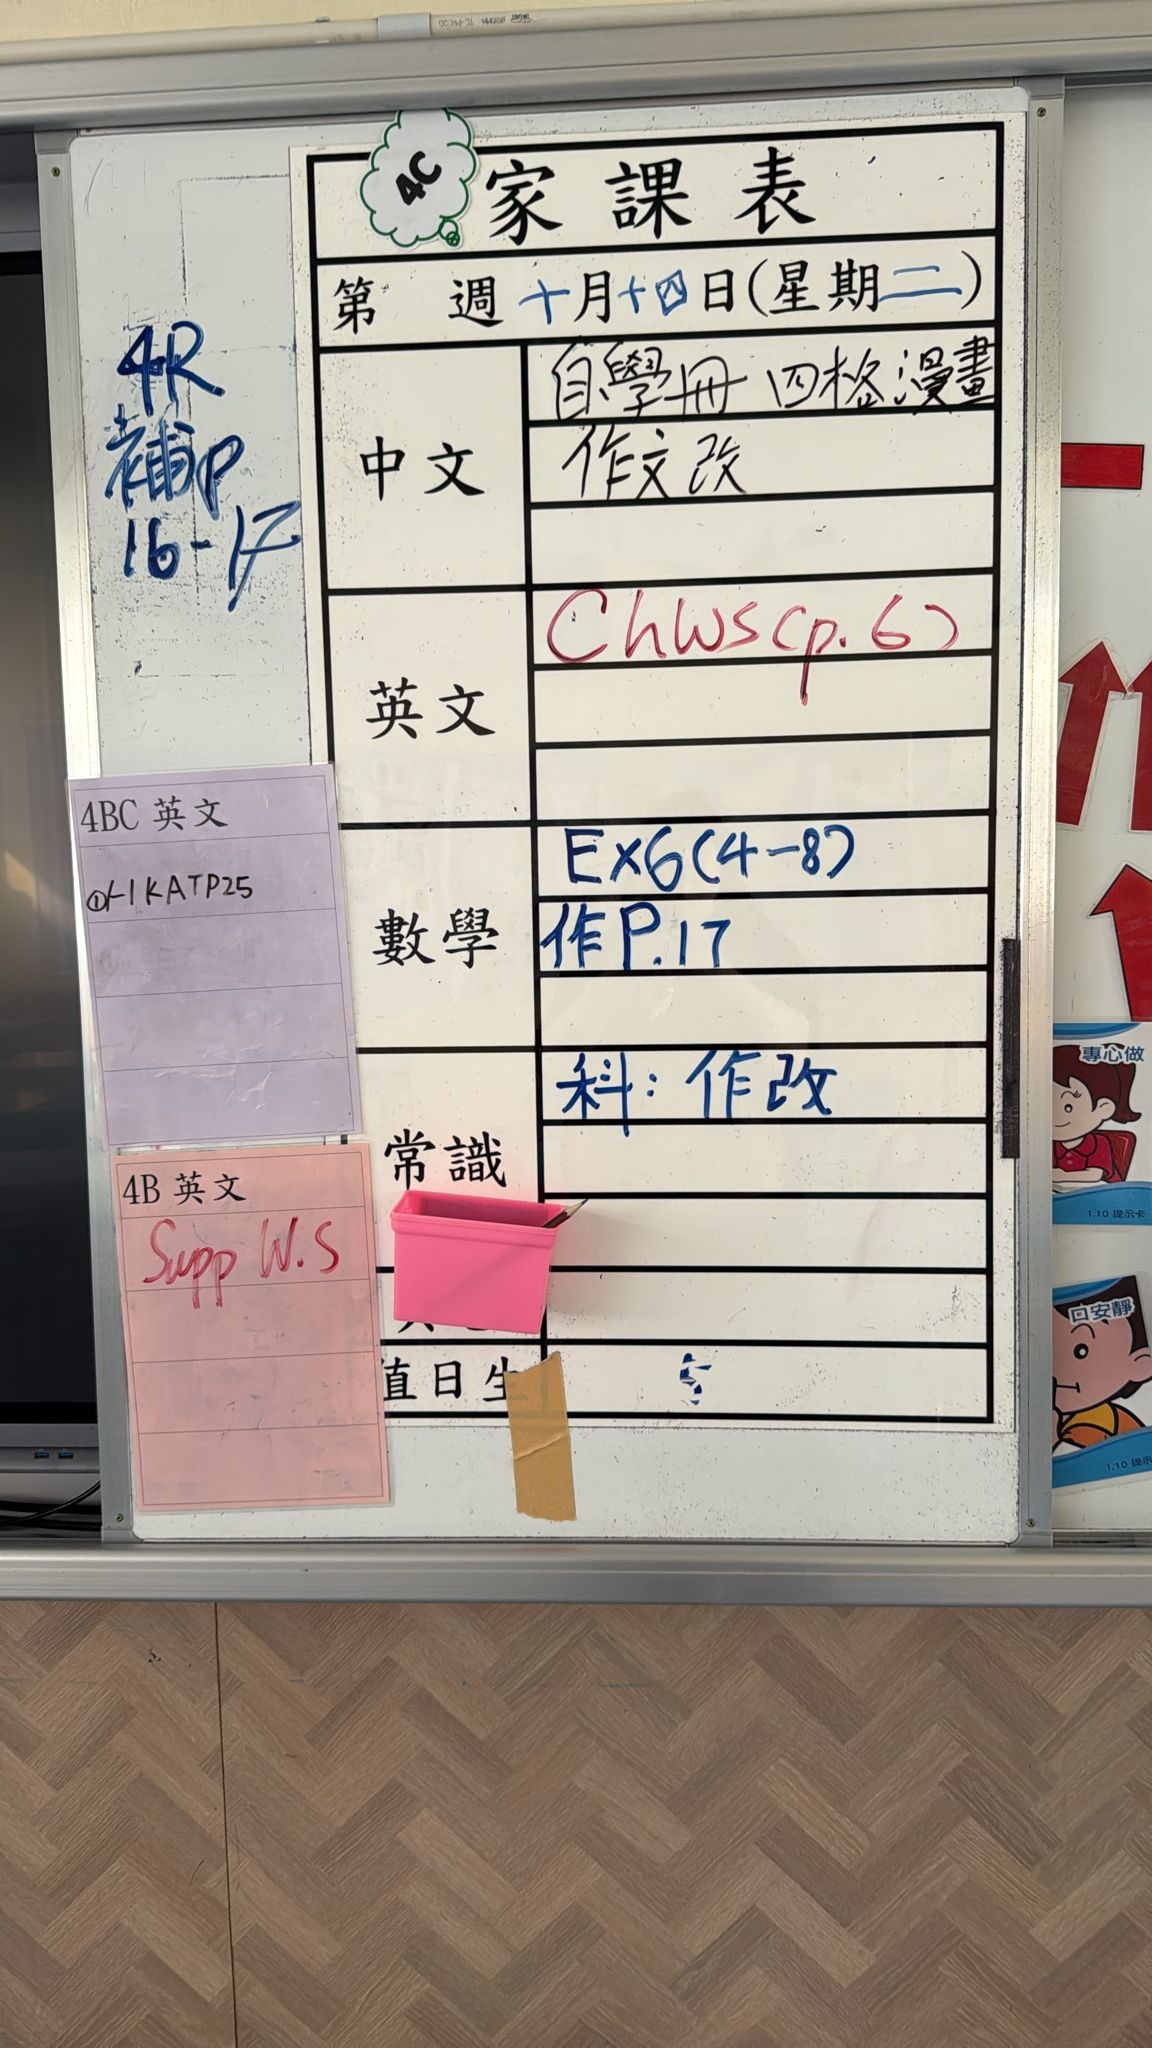 4C
家課表
第 週 十月十四日(星期二)
4R
補P
16-17
中文
自學冊 四格漫畫
作文改
英文
ChWS(p.6)
4BC 英文
KATP25
數學
Ex6(4-8)
作P.17
常識
科：作改
4B 英文
Supp W.S
值日生
5
專心做
1.10 提示卡
安靜
1.10 提示